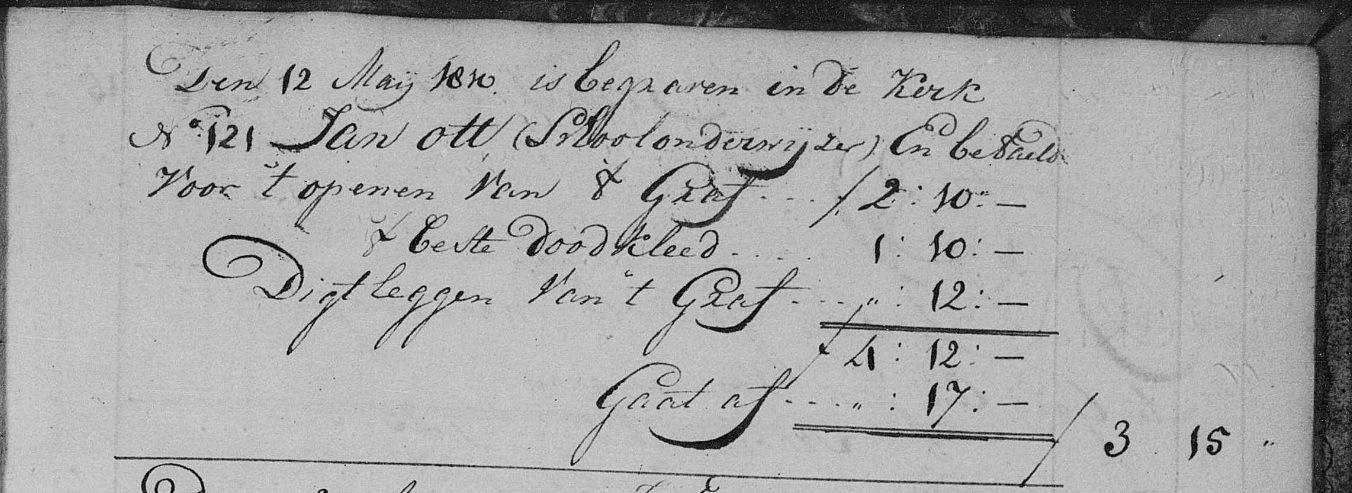 Den 12 Maij 1810. is begraven in de Kerk
No. 121 Jan ott (Schoolonderwijzer) En betaeld
Voor 't openen Van 't Graf ... f 2 : 10 : —
't beste doodkleed .... 1 : 10 : —
Digtleggen Van 't Graf .... " : 12 : —
f 4 : 12 : —
Gaat af .... " : 17 : —
f 3 15 "